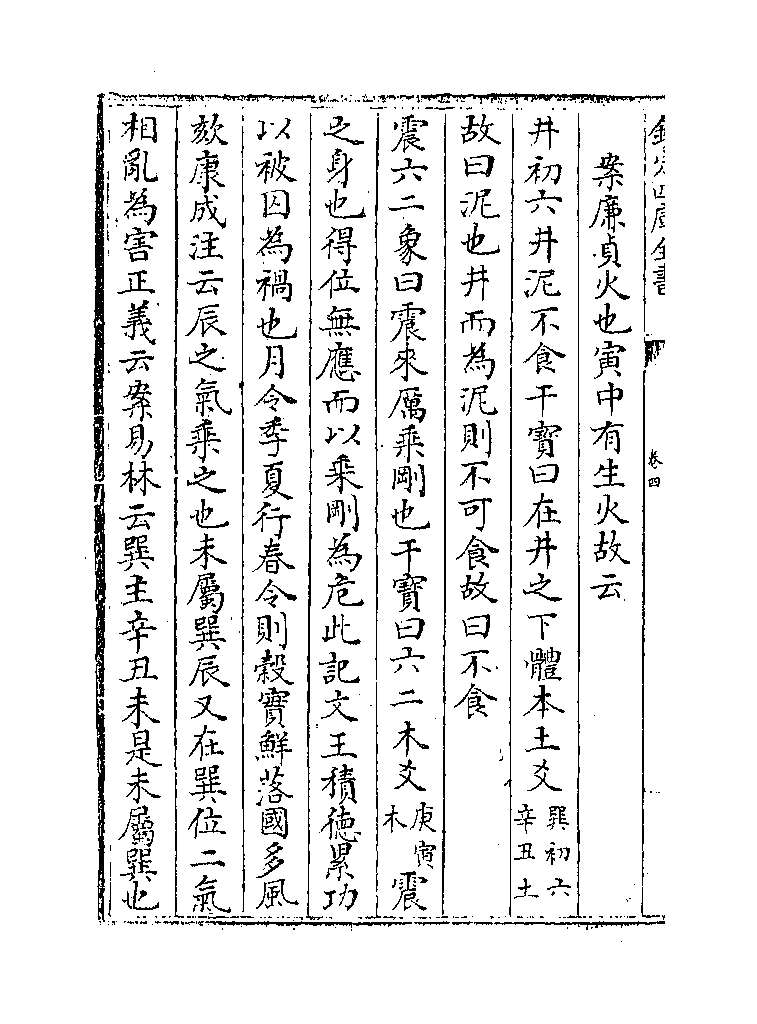 欽定四庫全書
卷四
案廉貞火也寅中有生火故云
井初六井泥不食干寶曰在井之下體本土爻巽初六辛丑土
故曰泥也井而為泥則不可食故曰不食
震六二象曰震來厲乘剛也干寶曰六二木爻庚寅木震
之身也得位無應而以乘剛為危此記文王積德累功
以被囚為禍也月令季夏行春令則穀實鮮落國多風
欬康成注云辰之氣乘之也未屬巽辰又在巽位二氣
相亂為害正義云案易林云巽主辛丑未是未屬巽也